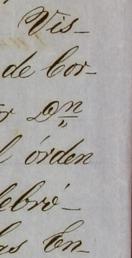 Vis-
de Cor-
r Dn
l órden
lebró-
las En-